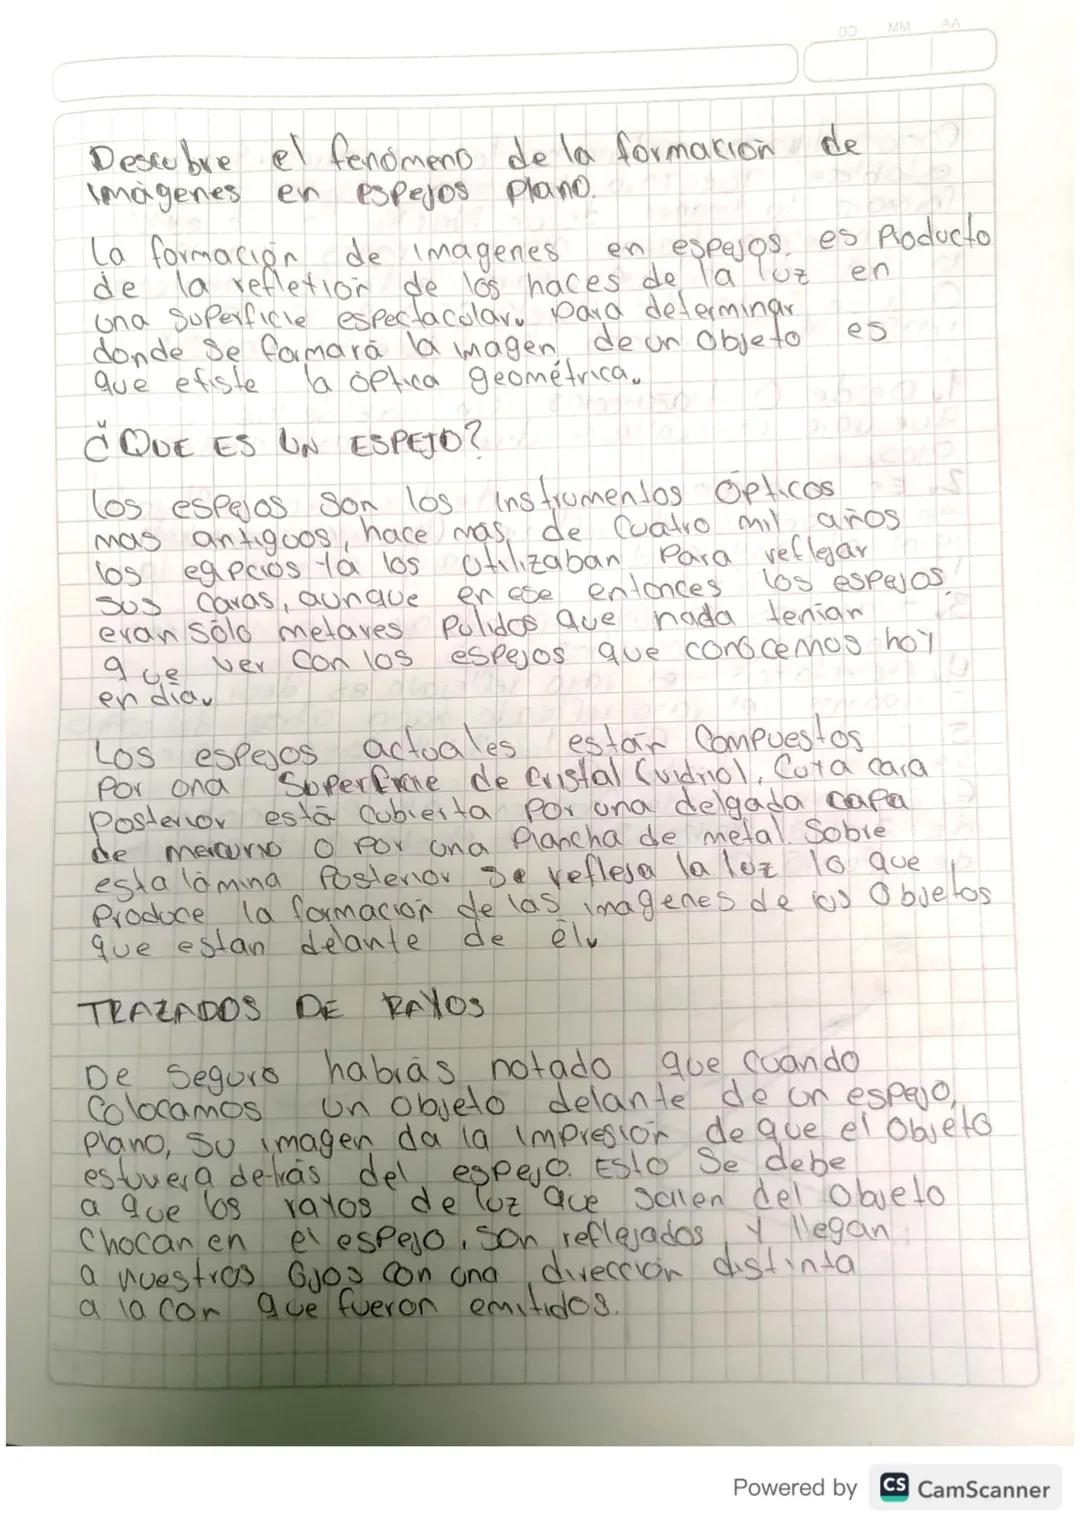 DD MM AA
Descubre el fenómeno de la formación de
imágenes en espejos plano.
La formación de imagenes en espejos, es Producto
de la refletion de los haces de la luz en
una superficie espectacolar. para determinar
donde se formará la imagen de un objeto es
que efiste la óptica geométrica.
¿QUE ES UN ESPEJO?
los espejos son los instrumentos Ópticos
mas antiguos, hace más de Cuatro mil años
los egipcios ya los utilizaban Para reflejar
sus caras, aunque en ese entonces los espejos
eran sólo metares Pulidos que nada tenian
que ver con los espejos que conocemos hoy
en dia.
Los espejos actuales están Compuestos
Por una Superficie de Cristal (vidrio), Cuya cara
Posterior está Cubierta Por una delgada capa
de mercurio o por una Plancha de metal. Sobre
esta lámina Posterior Se refleja la luz lo que
Produce la formación de las imagenes de los Objetos
que estan delante de él.
TRAZADOS DE RAYOS
De Seguro habrás notado que Cuando
Colocamos un objeto delante de un espejo,
Plano, su imagen da la impresión de que el Objeto
estuvera detrás del espejo. Esto Se debe
a que los rayos de luz que salen del objeto
Chocan en el espejo, son reflejados y llegan
a nuestros Ojos con una dirección distinta
a la con que fueron emitidos.
Powered by CS CamScanner